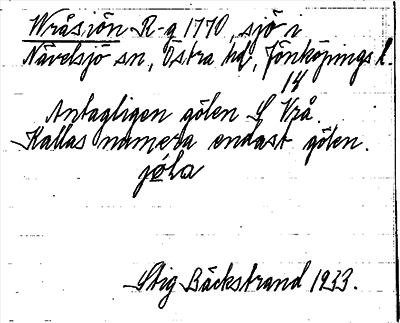 Wråsiön R-g 1770, sjö i
Nävelsjö sn, Östra hd, Jönköpings l.
14
Antagligen gölen S Vrå.
Kallas numera endast gölen.
jøla
Stig Bäckstrand 1933.